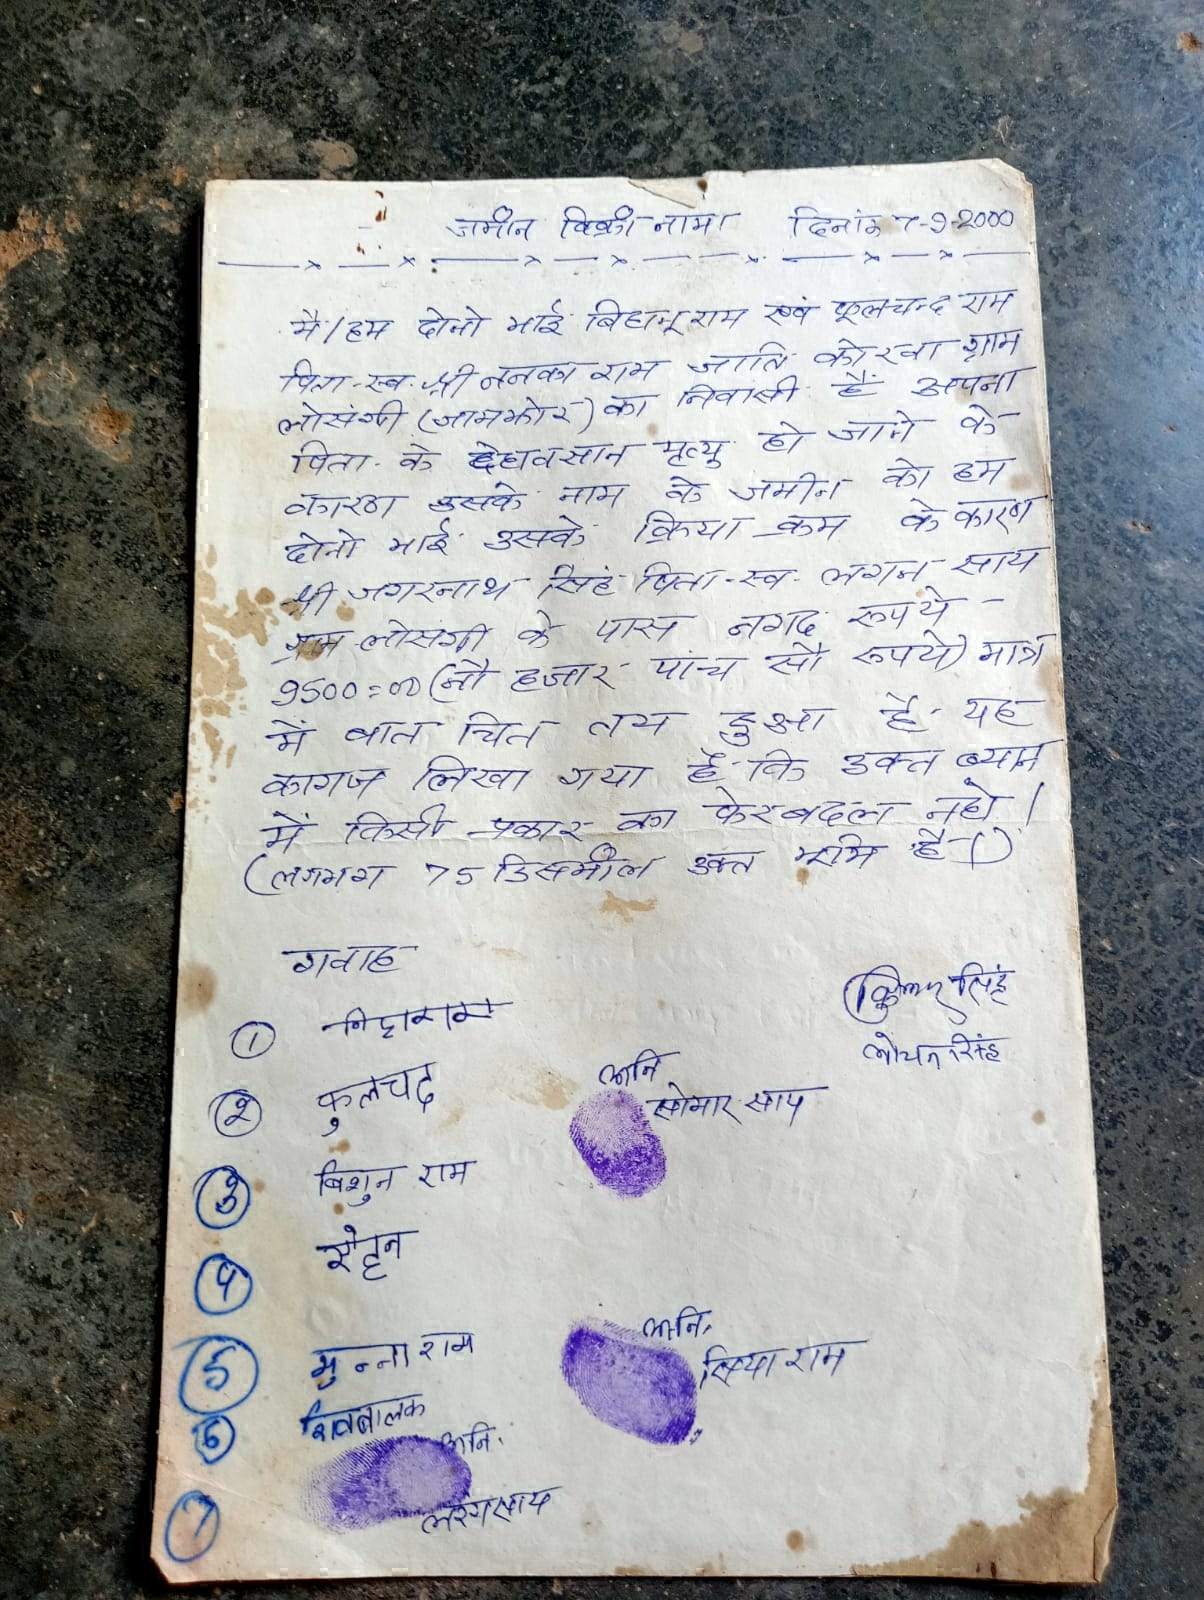 जमीन बिक्री नामा दिनांक 7-9-2000
मै/हम दोनो भाई बिहानू राम एवं फूलचन्द राम
पिता-स्व. श्री ननका राम जाति कोरवा ग्राम
लोसंगी (जामझोर) का निवासी है अपना
पिता के देहावसान मृत्यु हो जाने के
कारण उसके नाम के जमीन को हम
दोनो भाई उसके क्रिया क्रम के कारण
श्री जगरनाथ सिंह पिता-स्व. लगन साय
ग्राम लोसंगी के पास नगद रूपये -
9500=00 (नौ हजार पांच सौ रूपये) मात्र
में बात चित तय हुआ है. यह
कागज लिखा गया है कि उक्त ब्यान
में किसी प्रकार का फेरबदल नहो।
(लगभग 75 डिसमील उक्त भूमि है।)
गवाह
सिंह
① 
② फुलचद
③ बिशुन राम
④
⑤ मुन्ना राम
⑥ शिवबालक
⑦
सोमार साय
राम